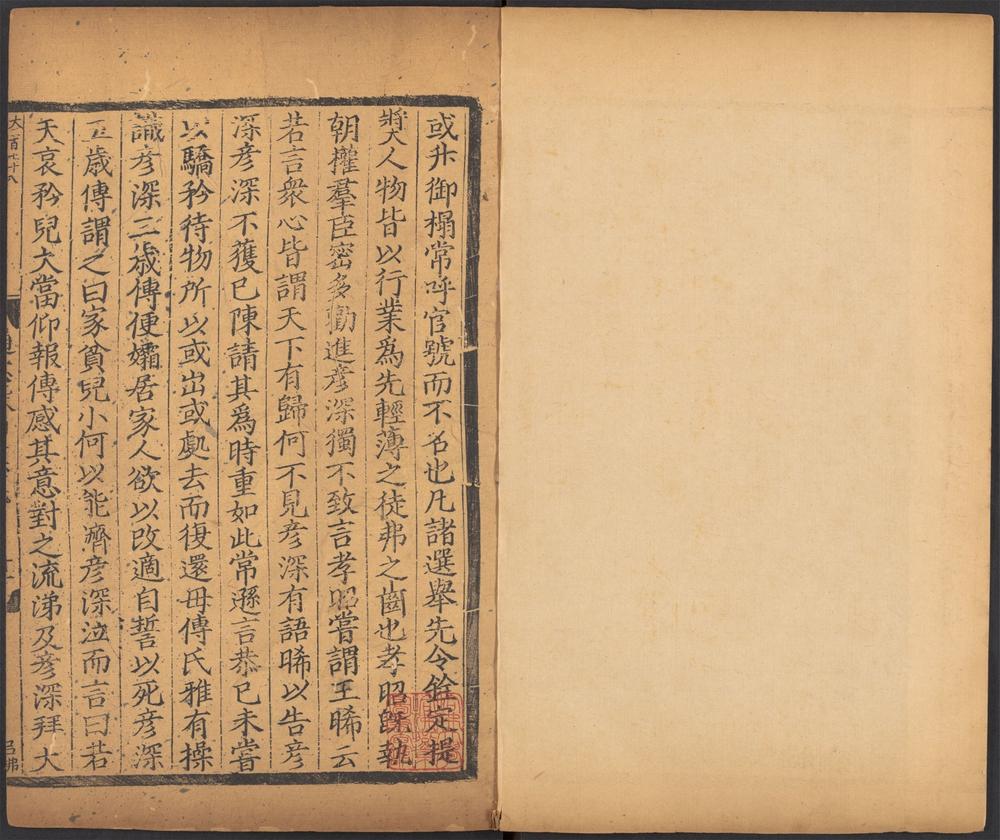 或升御榻常呼官號而不名也凡諸選舉先令銓定提
獎人物皆以行業爲先輕薄之徒弗之齒也孝昭旣執
朝權羣臣密多勸進彦深獨不致言孝昭嘗謂王晞云
若言衆心皆謂天下有歸何不見彦深有語晞以告彦
深彦深不獲已陳請其爲時重如此常遜言恭已未嘗
以驕矜待物所以或出或處去而復還母傅氏雅有操
識彦深三歲傅便孀居家人欲以改適自誓以死彦深
五歲傅謂之曰家貧兒小何以能濟彦深泣而言曰若
天哀矜兒大當仰報傅感其意對之流涕及彦深拜大
大一百七十八
呂弗